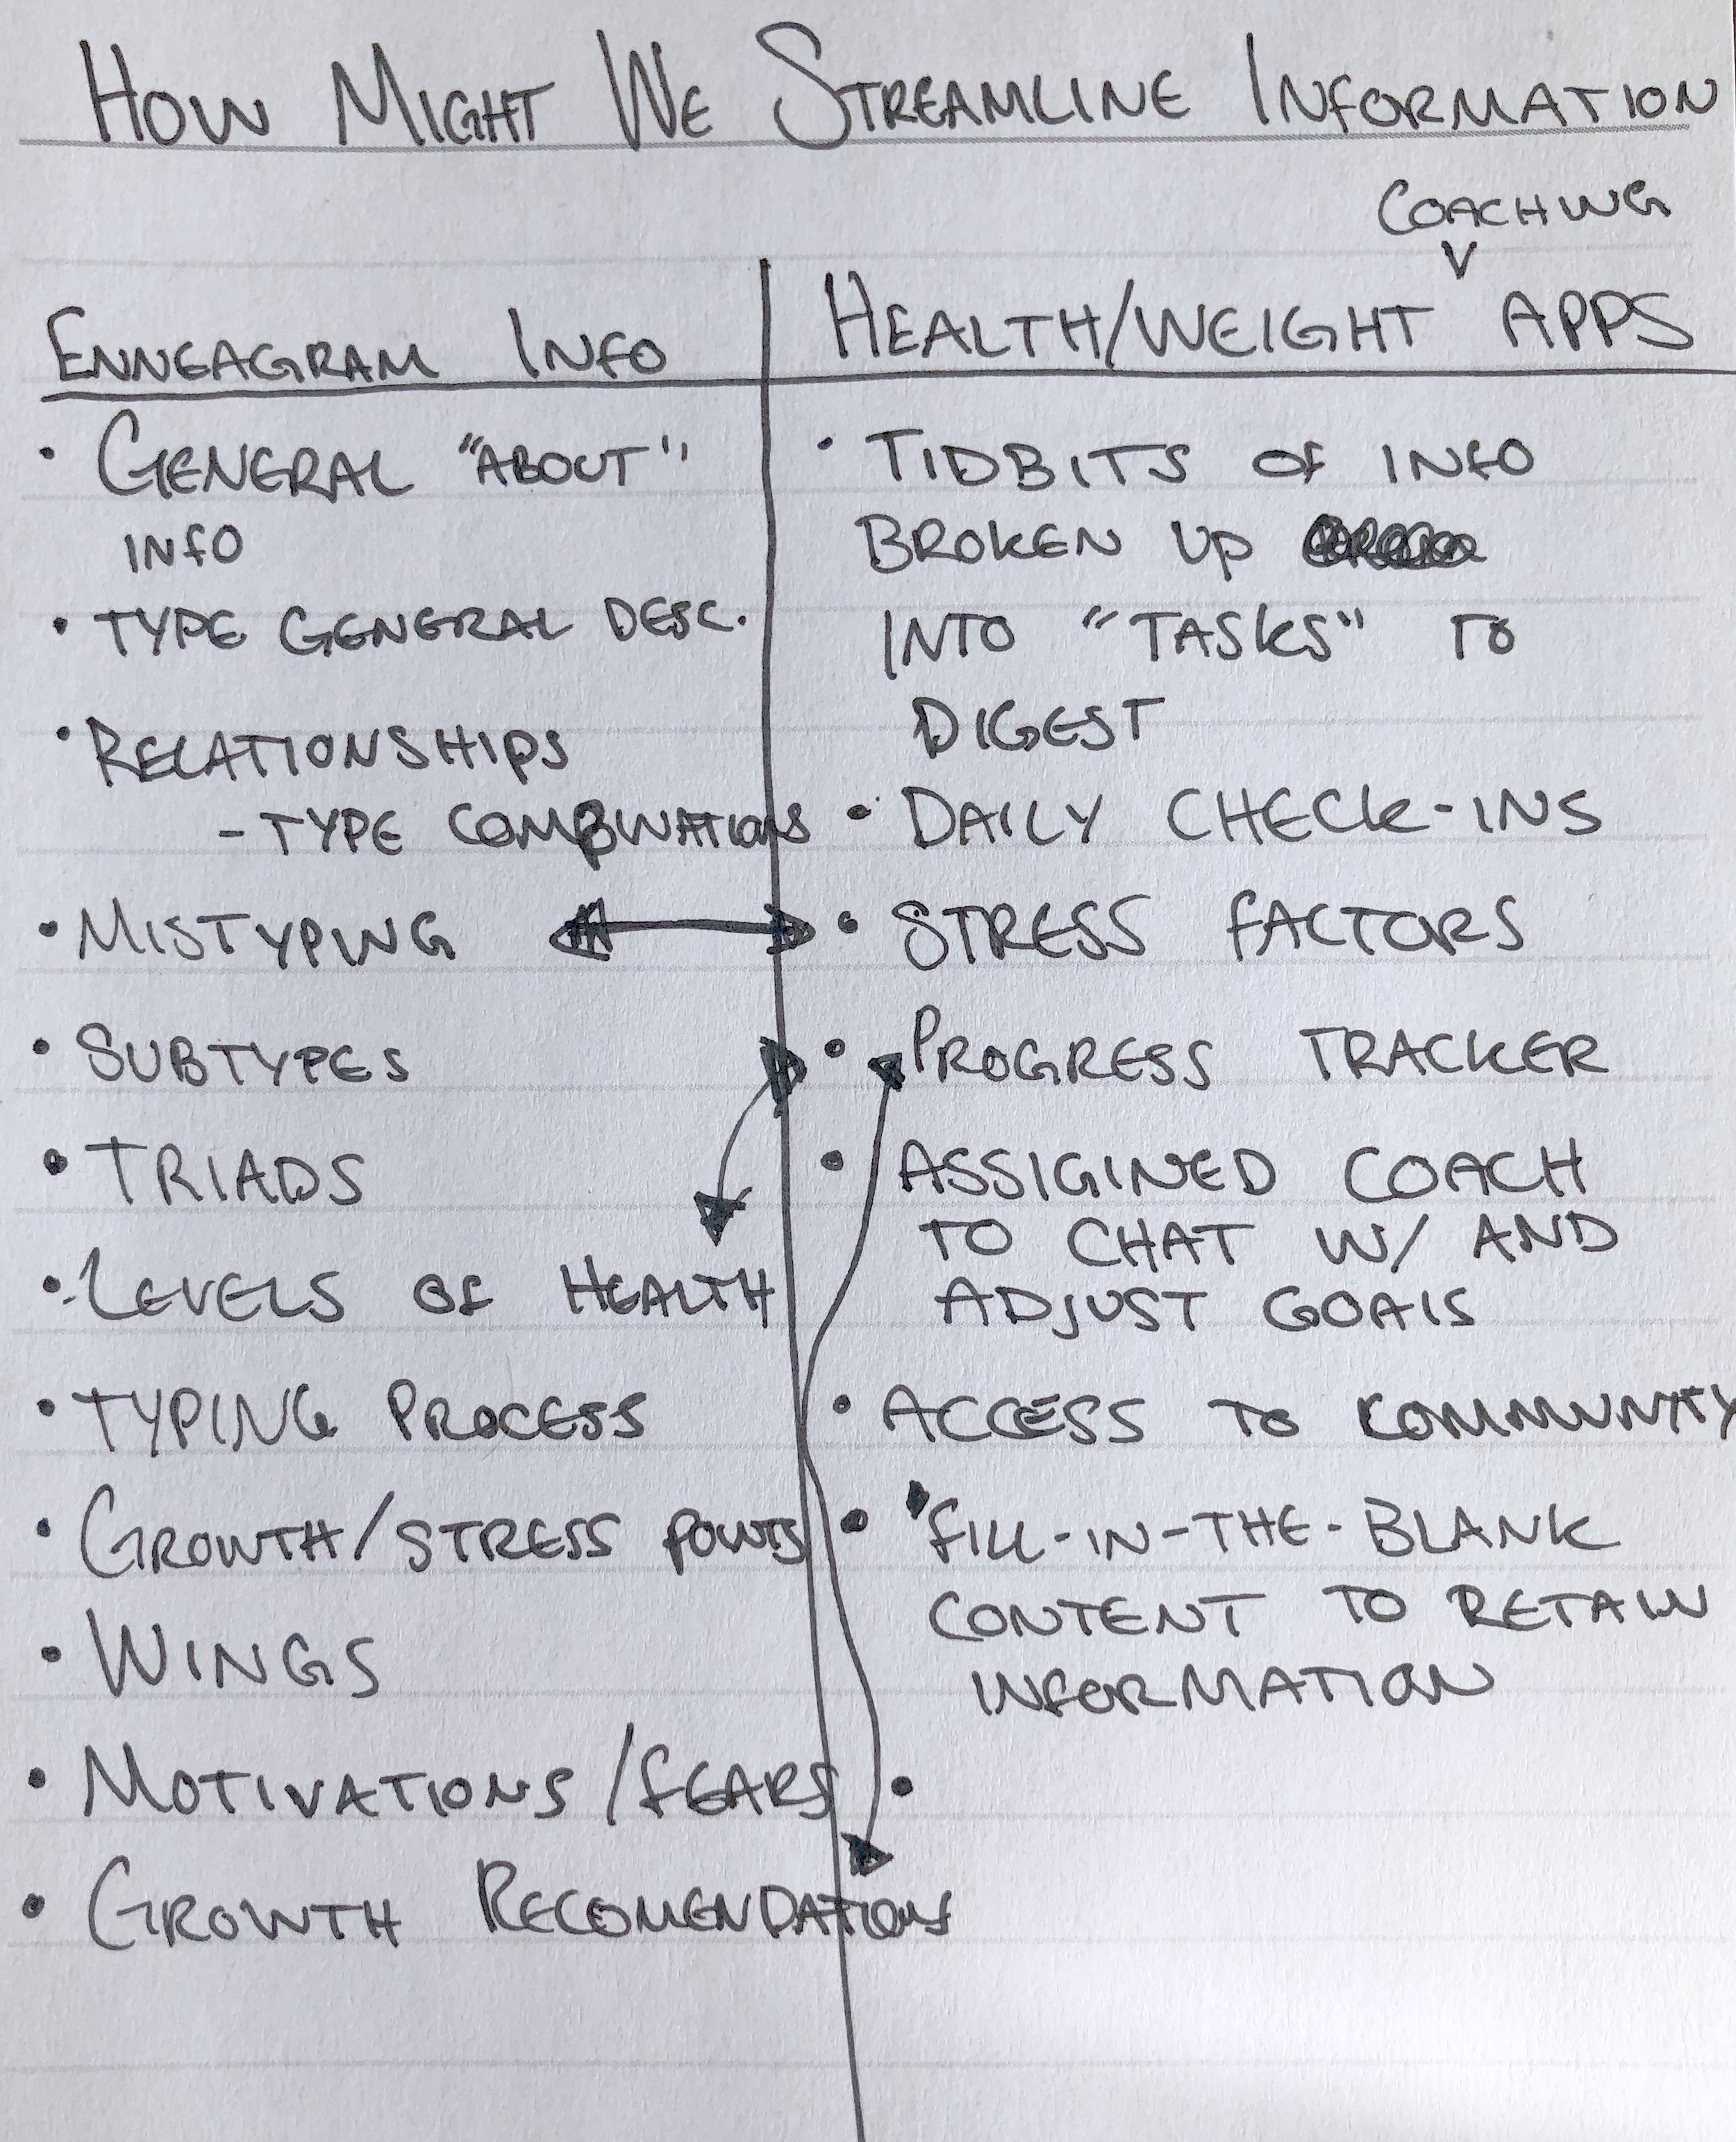 HOW MIGHT WE STREAMLINE INFORMATION
ENNEAGRAM INFO
• GENERAL "ABOUT"
INFO
• TYPE GENERAL DESC.
• RELATIONSHIPS
- TYPE COMBINATIONS
• MISTYPING
• SUBTYPES
• TRIADS
• LEVELS OF HEALTH
• TYPING PROCESS
• GROWTH/STRESS POINTS
• WINGS
• MOTIVATIONS/FEARS
• GROWTH RECOMENDATIONS
COACHING
V
HEALTH/WEIGHT APPS
• TIDBITS OF INFO
BROKEN UP
INTO "TASKS" TO
DIGEST
• DAILY CHECK-INS
• STRESS FACTORS
• PROGRESS TRACKER
• ASSIGINED COACH
TO CHAT W/ AND
ADJUST GOALS
• ACCESS TO COMMUNITY
• FILL-IN-THE-BLANK
CONTENT TO RETAIN
INFORMATION
•